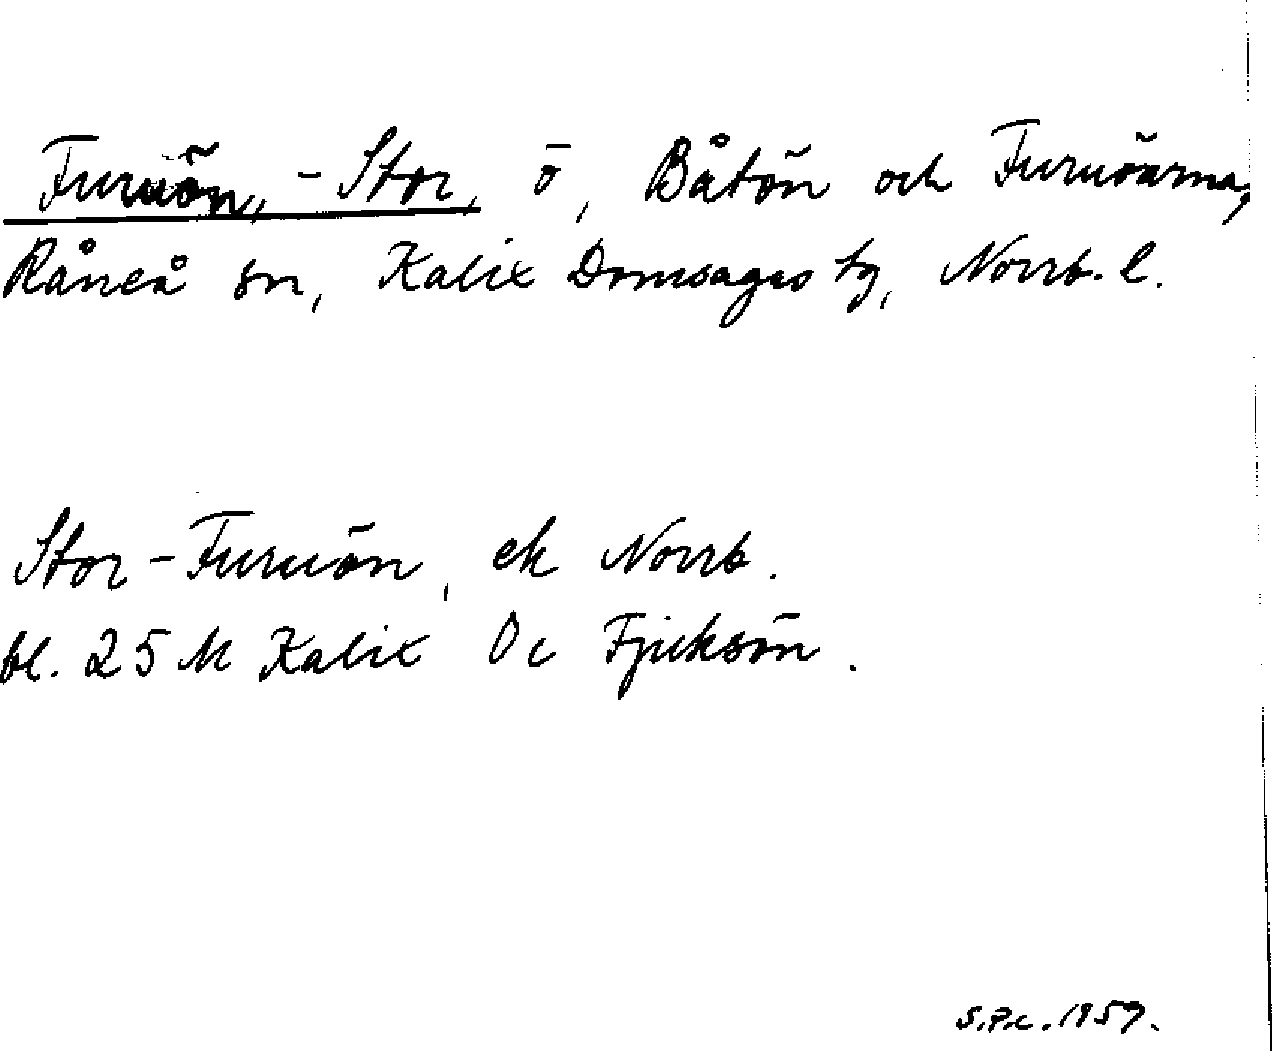 Furuön, -Stor, ö, Båtön och Furuöarna,
Råneå sn, Kalix Domsagas tg, Norrb. l.
Stor-Furuön, ek Norrb.
bl. 25 M Kalix Öc Fjuksön.
S.P.c. 1957.